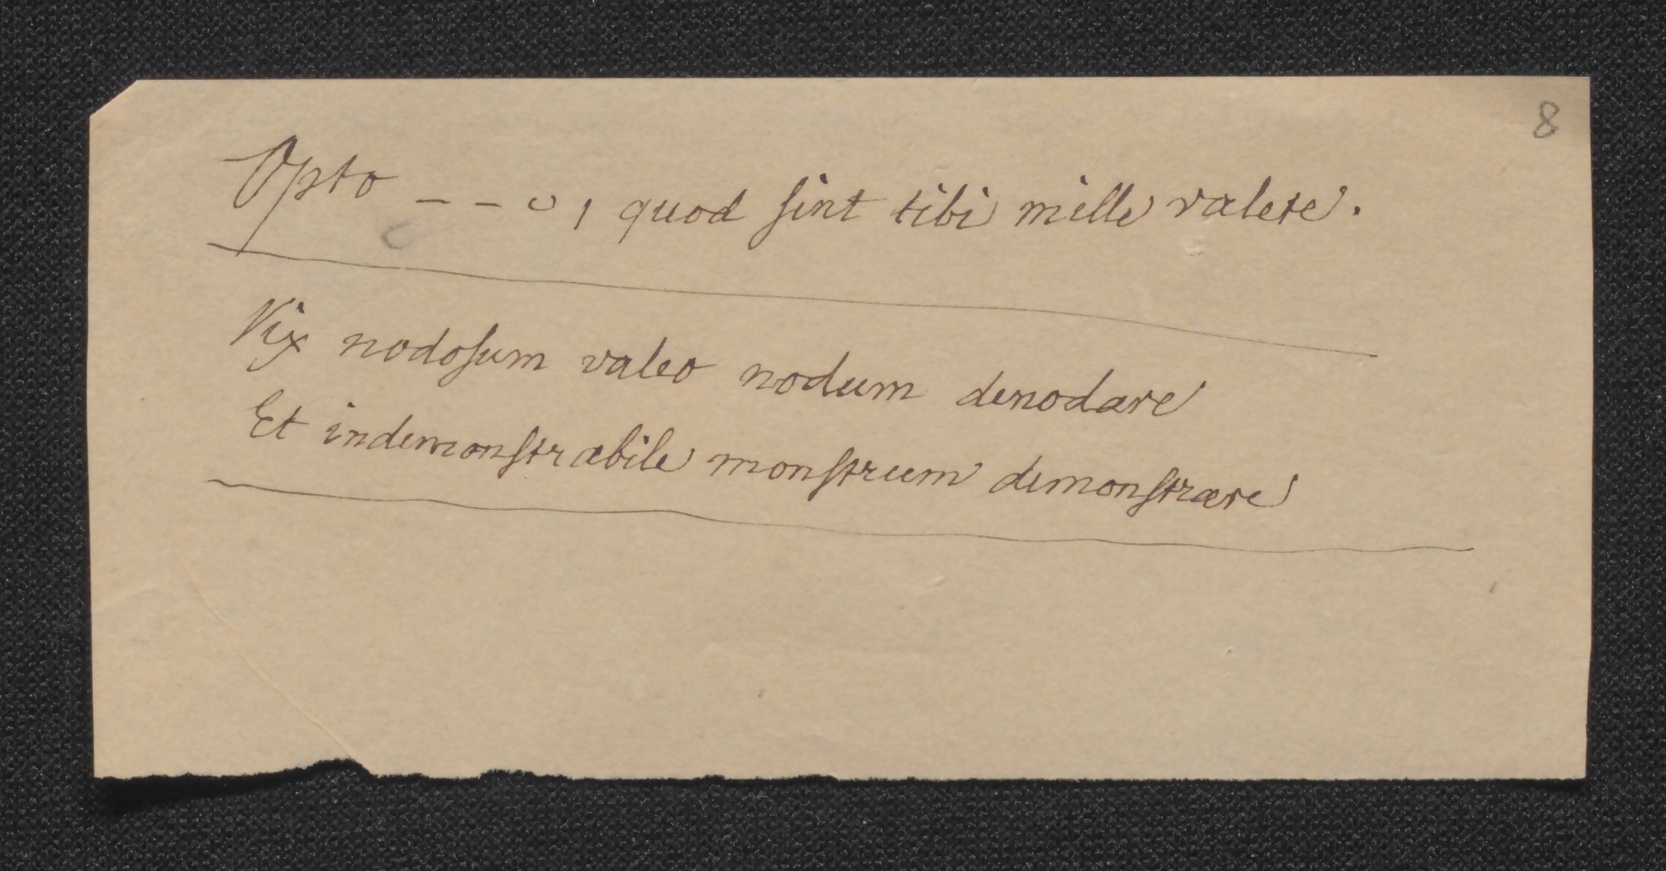 8
Opto _ _ ᴗ, quod ſint tibi mille valete.
Vix nodoſum valeo nodum denodare
Et indemonſtrabile monſtrum demonſtrare